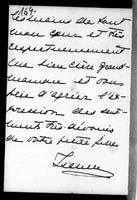 les mains de tout
mon cœur et très
respectueusement
ma bien chère grand-
maman et vous
prie d'agréer l'ex-
pression des sen-
timents très dévoués
de votre petite fille